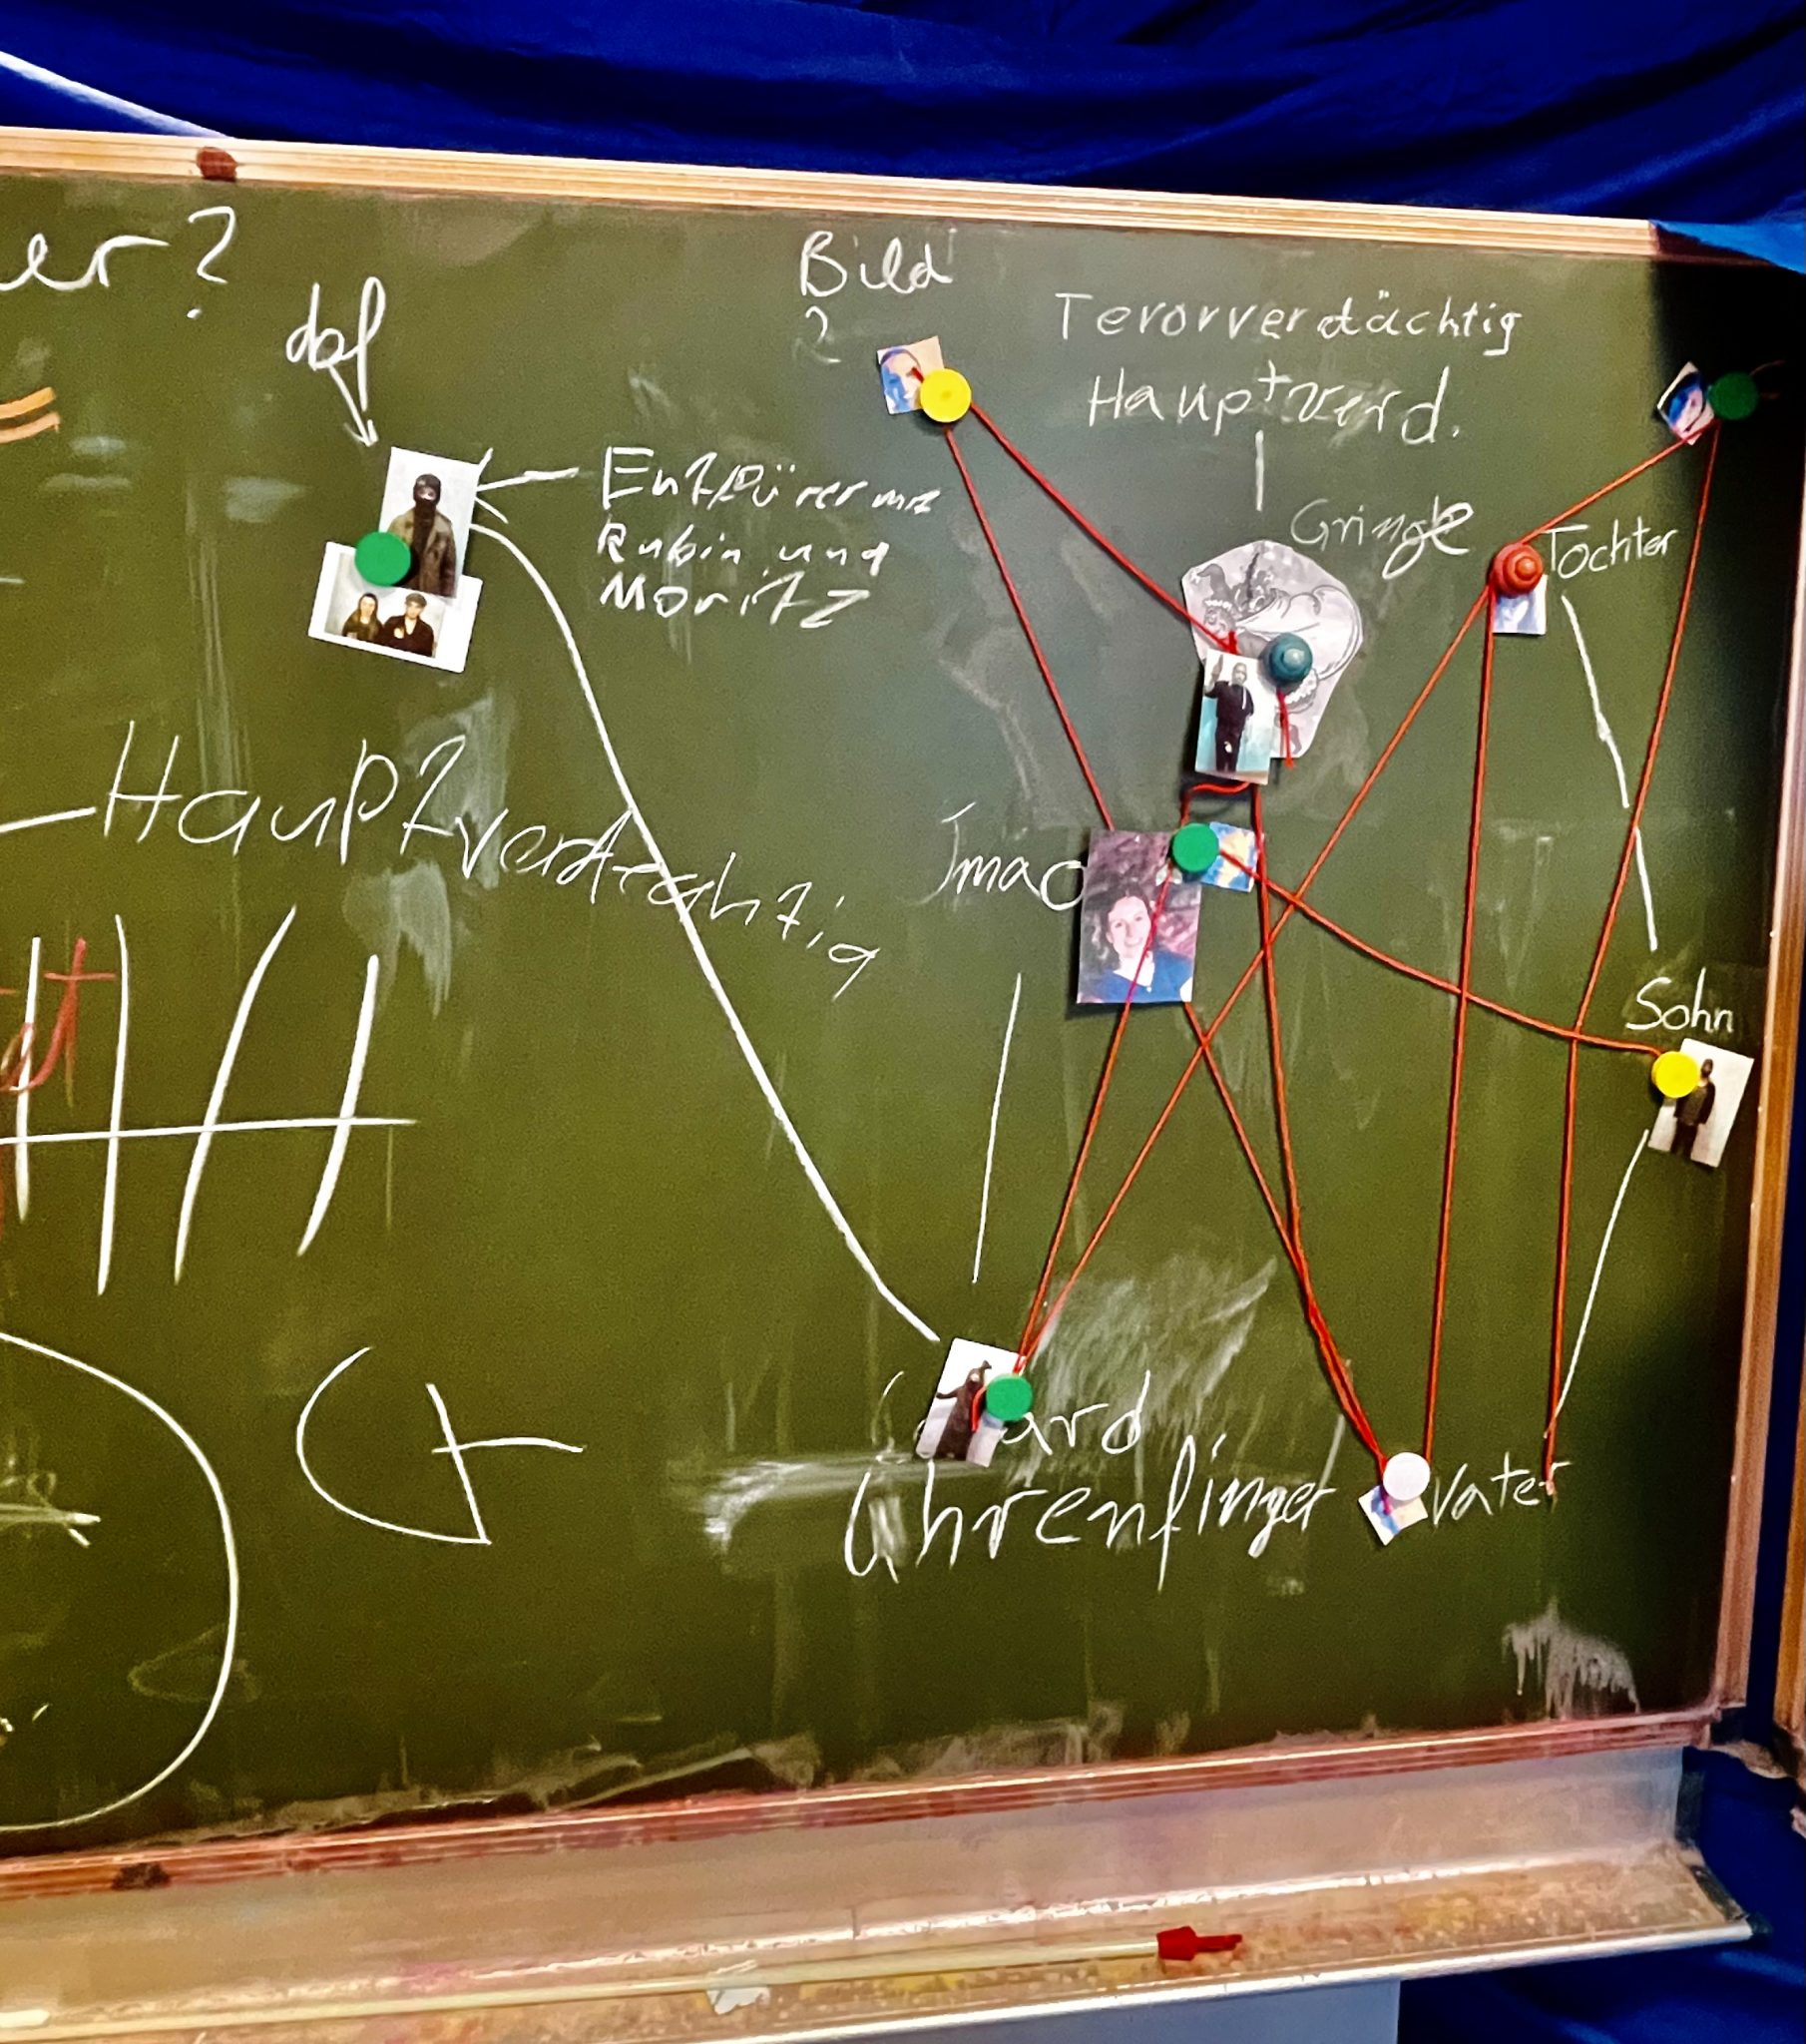 er?
dof
Bild
2
Terorverdächtig
Hauptverd.
Entfürer mit
Rubin und
Moritz
Gringe
Tochter
Hauptverdechtig
Jmao
Sohn
ard
Uhrenfinger
vater